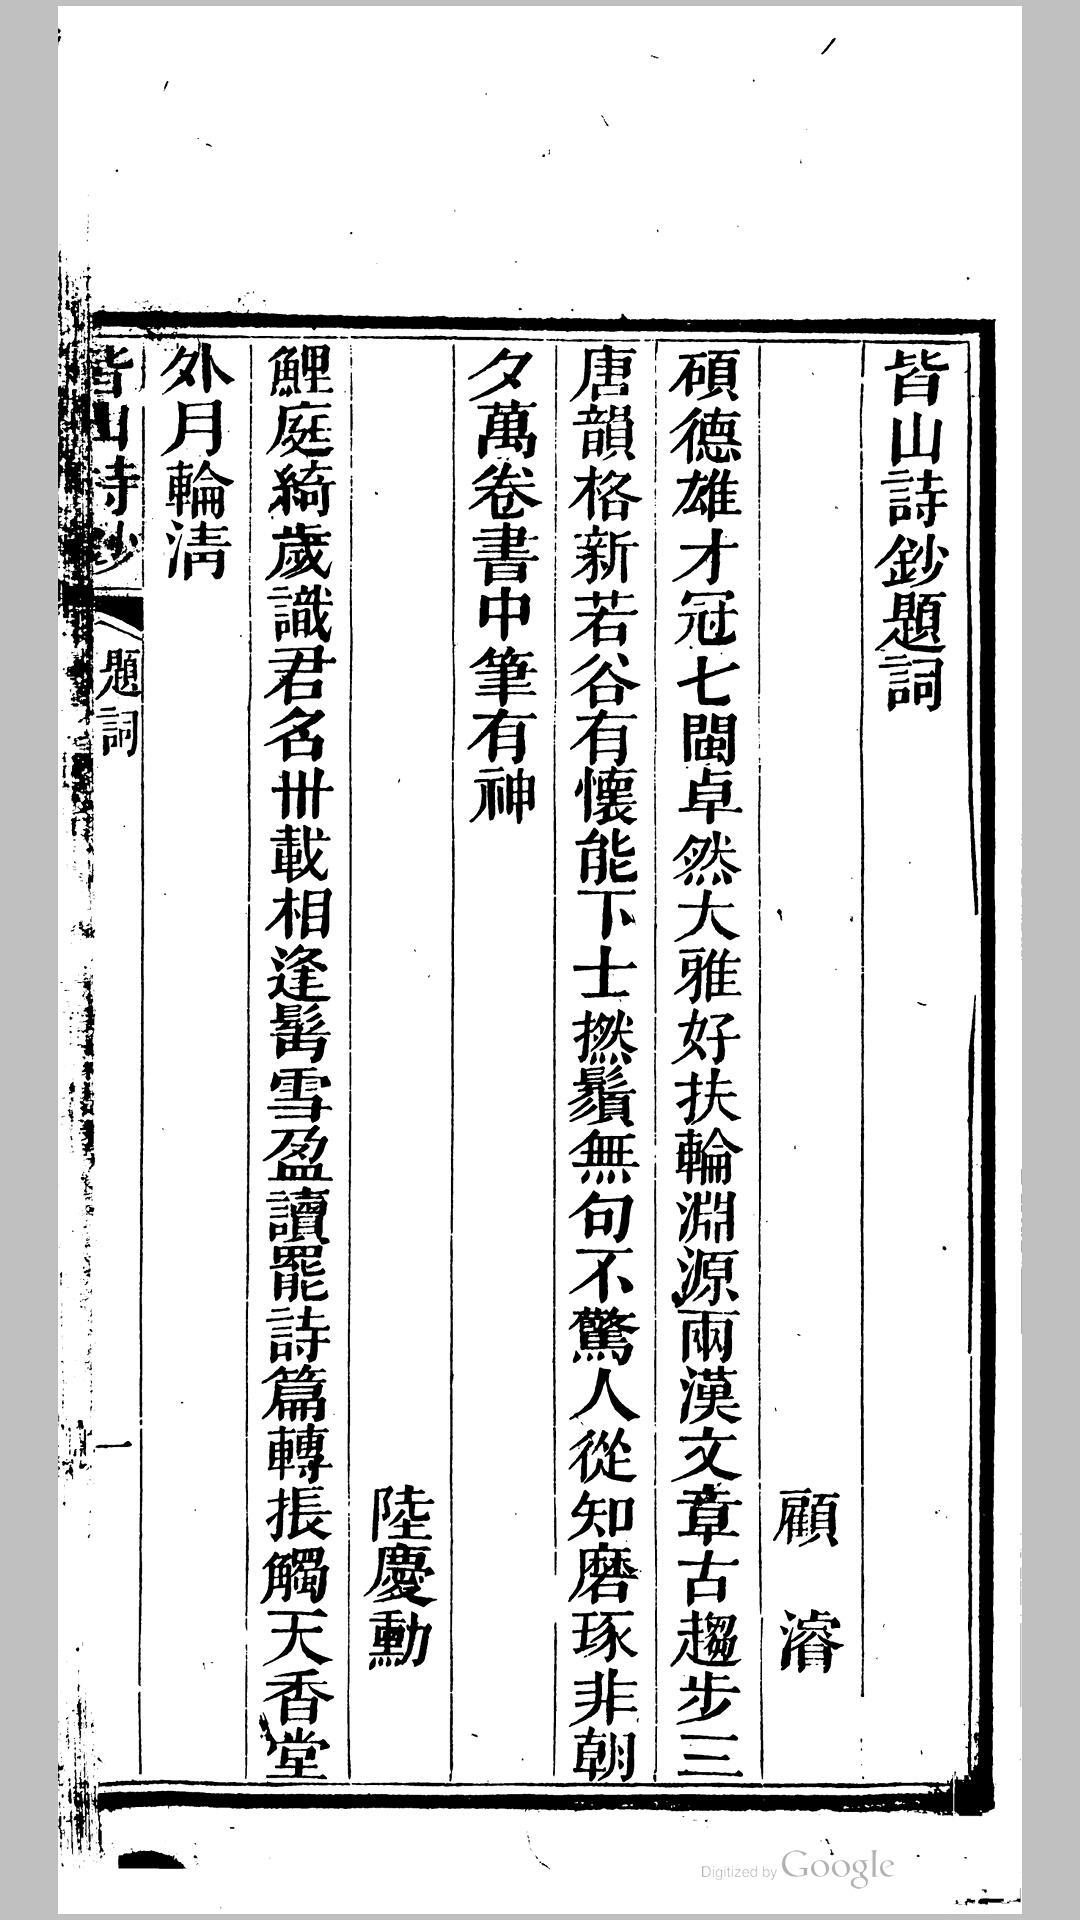 皆山詩鈔題詞
顧　濬
碩德雄才冠七閩卓然大雅好扶輪淵源兩漢文章古趨步三
唐韻格新若谷有懷能下士撚鬚無句不驚人從知磨琢非朝
夕萬卷書中筆有神
陸慶勳
鯉庭綺歲識君名卅載相逢髩雪盈讀罷詩篇轉振觸天香堂
外月輪淸
皆山詩鈔
題詞
一
Digitized by Google